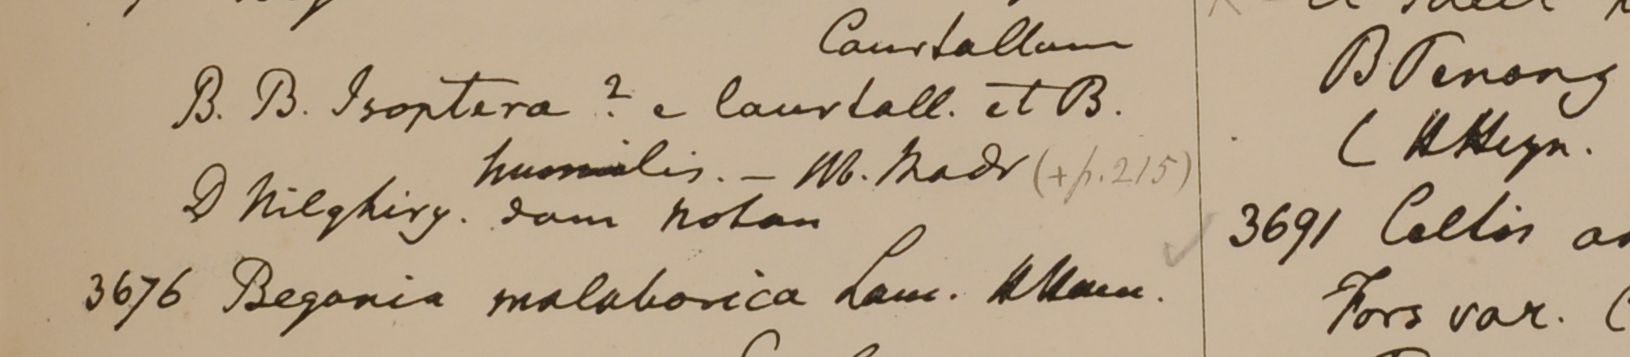 Courtallum
B. B. Isoptera? e Courtall. et B.
humilis. – M. Madr (+p. 215)
D Nilghiry. dam notan
3676 Begonia malabarica Lam. HHam.
B Penang
( HHeyn.
3691 Celtis
Fors var. (